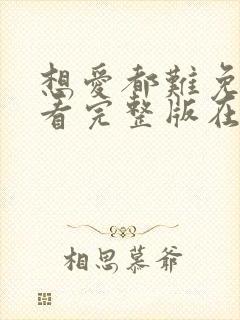 想爱都难免
看完整版在
相思慕爷